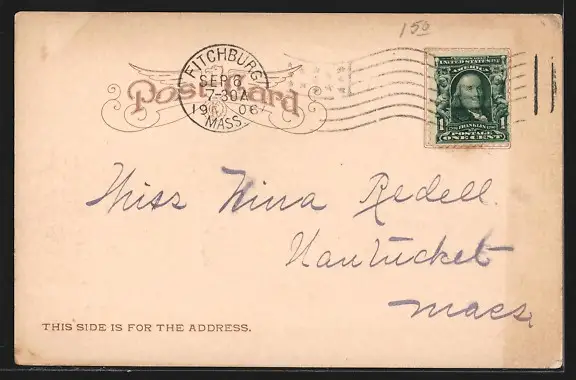 1 50
FITCHBURG
SEP 6
7-30A
1906
MASS.
Post Card
UNITED STATES OF
AMERICA
FRANKLIN
1 1
POSTAGE
ONE CENT
Miss Nina Redell.
Nantucket
Mass
THIS SIDE IS FOR THE ADDRESS.